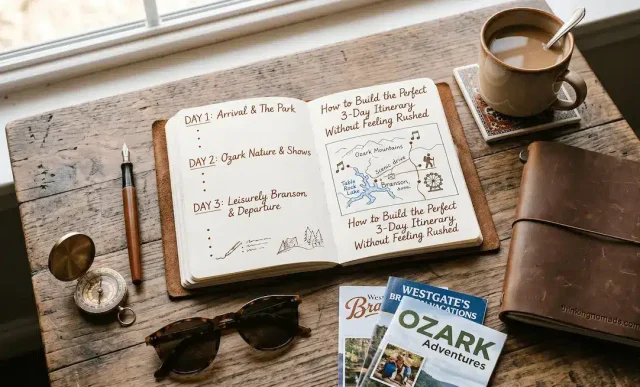 DAY 1: Arrival & The Park
DAY 2: Ozark Nature & Shows
DAY 3: Leisurely Branson
& Departure
How to Build the Perfect
3-Day Itinerary
Without Feeling Rushed
Ozark Mountains
Scenic drive
Table
Rock
Lake
Branson,
How to Build the Perfect
3-Day Itinerary
Without Feeling Rushed
WESTGATE'S
VACATIONS
OZARK
Adventures
thinkingnomads.com